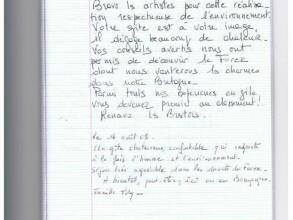 Bravo les artistes pour cette réalisa-
tion respectueuse de l'environnement.
Votre gîte est à votre image,
il dégage beaucoup de chaleur.
Vos conseils avertis nous ont
permis de découvrir le Forez
dont nous vanterons les charmes
dans notre Bretagne.
Parmi toutes nos expériences en gîte,
vous devenez premier au classement!
Kenavo les
Le 16 août 05.
Un gîte chaleureux, confortable qui respecte
à la fois l'homme et l'environnement.
Séjour très agréable dans les monts du Forez.
A bientôt, peut-être, ici ou en Bourgogne.
Famille